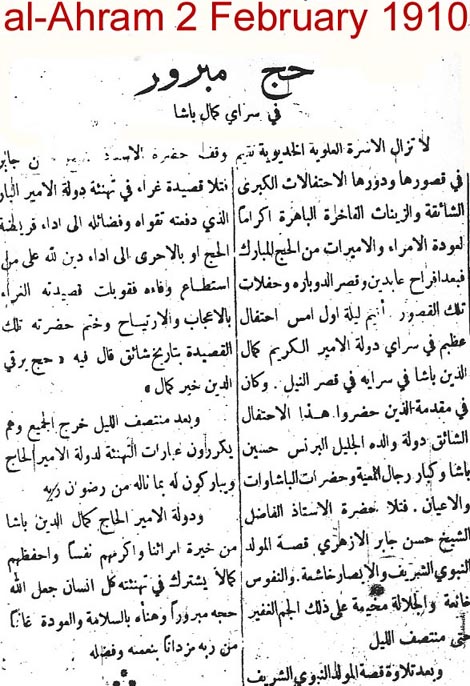 al-Ahram 2 February 1910
حج مبرور
في سراي كمال باشا
لا تزال الاسرة العلوية الخديوية تقيم
في قصورها ودورها الاحتفالات الكبرى
الشائقة والزينات الفاخرة الباهرة اكراماً
لعودة الامراء والاميرات من الحج المبارك
فبعد افراح عابدين وقصر الدوباره وحفلات
تلك القصور . أقيم ليلة اول امس احتفال
عظيم في سراي دولة الامير الكريم كمال
الدين باشا في سرايه في قصر النيل . وكان
في مقدمة الذين حضروا هذا الاحتفال
الشائق دولة والده الجليل البرنس حسين
باشا وكبار رجال المعية وحضرات الباشاوات
والاعيان . فتلا حضرة الاستاذ الفاضل
الشيخ حسن جابر الازهري قصة المولد
النبوي الشريف والابصار خاشعة . والنفوس
والجلالة مخيمة على ذلك الجم الغفير
حتى منتصف الليل
وبعد تلاوة قصة المولد النبوي الشريف
وقف حضرة الاستاذ جابر
فتلا قصيدة غراء في تهنئة دولة الامير البار
الذي دفعته تقواه وفضائله الى اداء فريضة
الحج او بالاحرى الى اداء دين لله على من
استطاع وفاءه فقوبلت قصيدته الغراء
بالاعجاب والارتياح وختم حضرته تلك
القصيدة بتاريخ شائق قال فيه « حج برقي
الدين خير كمال »
وبعد منتصف الليل خرج الجميع وهم
يكررون عبارات التهنئة لدولة الامير الحاج
ويباركون له بما ناله من رضوان ربه
ودولة الامير الحاج كمال الدين باشا
من خيرة امرائنا واكرمهم نفساً واحفظهم
كمالاً يشترك في تهنئته كل انسان جعل الله
حجه مبروراً وهناه بالسلامة والعودة غانماً
من ربه مزداناً بنعمه وفضله